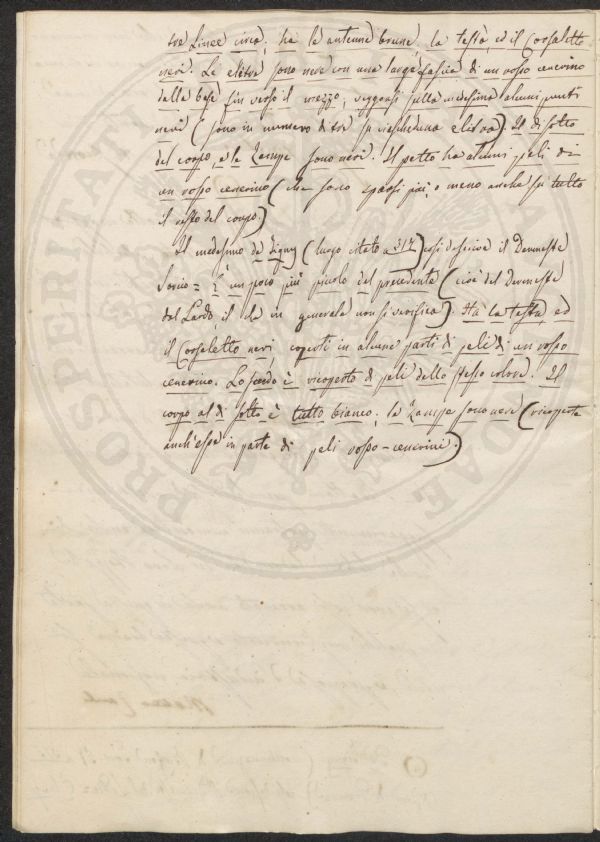 tre linee circa; ha le antenne brune, la testa, ed il Corsaletto
neri. Le elitre sono nere con una larga fascia di un rosso cenerino
dalla base fin verso il mezzo; veggonsi sulla medesima alcuni punti
neri (sono in numero di tre su ciascheduna elitra). Il di sotto
del corpo, e le Zampe sono neri. Il petto ha alcuni peli di
un rosso cenerino (che sono sparsi più, o meno anche su tutto
il resto del corpo.)
Il medesimo de Tigny (luogo citato a 317) così descrive il Dermeste
Sorcio = È un poco più piccolo del precedente (cioè del Dermeste
del Lardo, il che in generale non si verifica). Ha la testa, ed
il Corsaletto neri, coperti in alcune parti di peli di un rosso
cenerino. Lo scudo è ricoperto di peli dello stesso colore. Il
corpo al di sotto è tutto bianco, le Zampe sono nere (ricoperte
anch'esse in parte di peli rosso-cenerini.)
PROSPERITATI